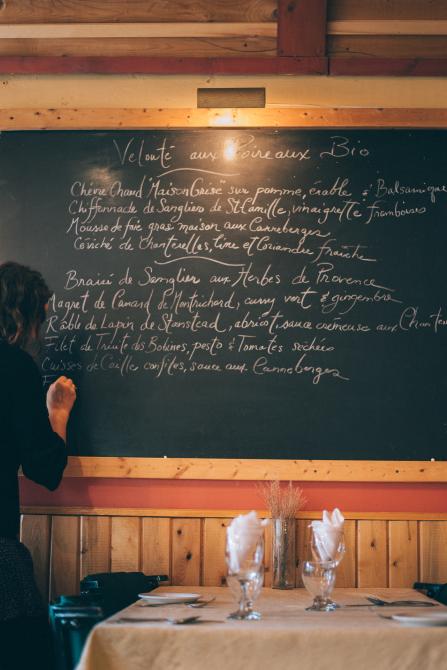 Velouté aux Poireaux Bio
Chèvre Chaud "Maison Grise" sur pomme, érable & Balsamique
Chiffonnade de Sanglier de St-Camille, vinaigrette framboises
Mousse de foie gras maison aux Canneberges
Céviché de Chanterelles, lime et Coriandre fraîche
Braisé de Sanglier aux Herbes de Provence
Magret de Canard de Montrichard, curry vert & gingembre
Râble de Lapin de Stanstead, abricot, sauce crémeuse aux Chanter
Filet de Truite des Bobines, pesto & Tomates séchées
Cuisses de Caille confites, sauce aux Canneberges
F